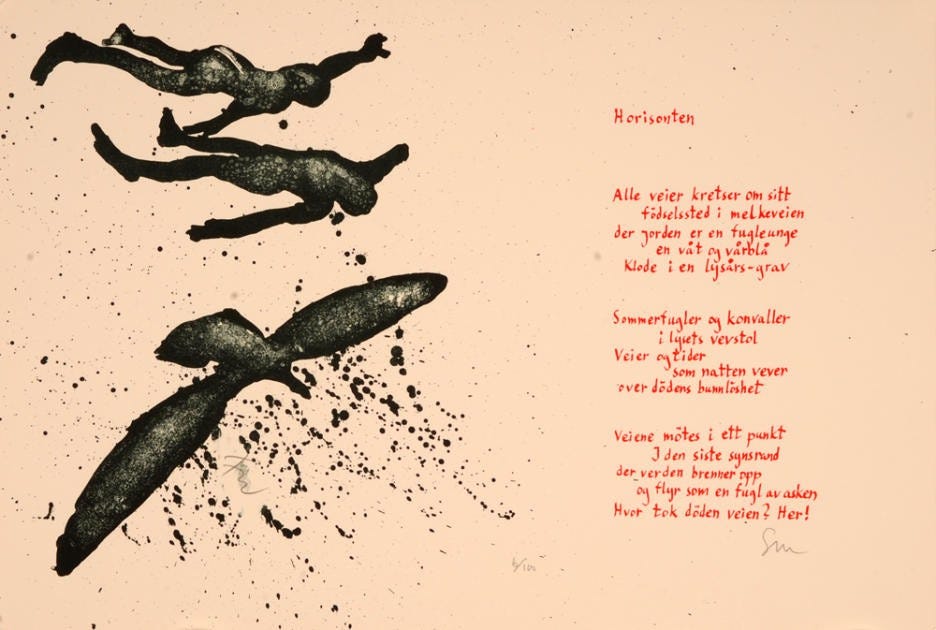 Horisonten
Alle veier kretser om sitt
födselssted i melkeveien
der jorden er en fugleunge
en våt og vårblå
Klode i en lysårs-grav
Sommerfugler og konvaller
i lysets vevstol
Veier og tider
som natten vever
over dödens bunnlöshet
Veiene mötes i ett punkt
I den siste synsrand
der verden brenner opp
og flyr som en fugl av asken
Hvor tok döden veien? Her!
/100